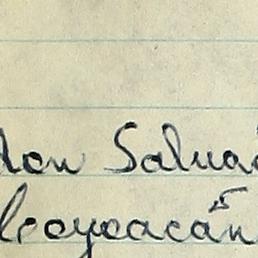 don Salva
Coyoacán